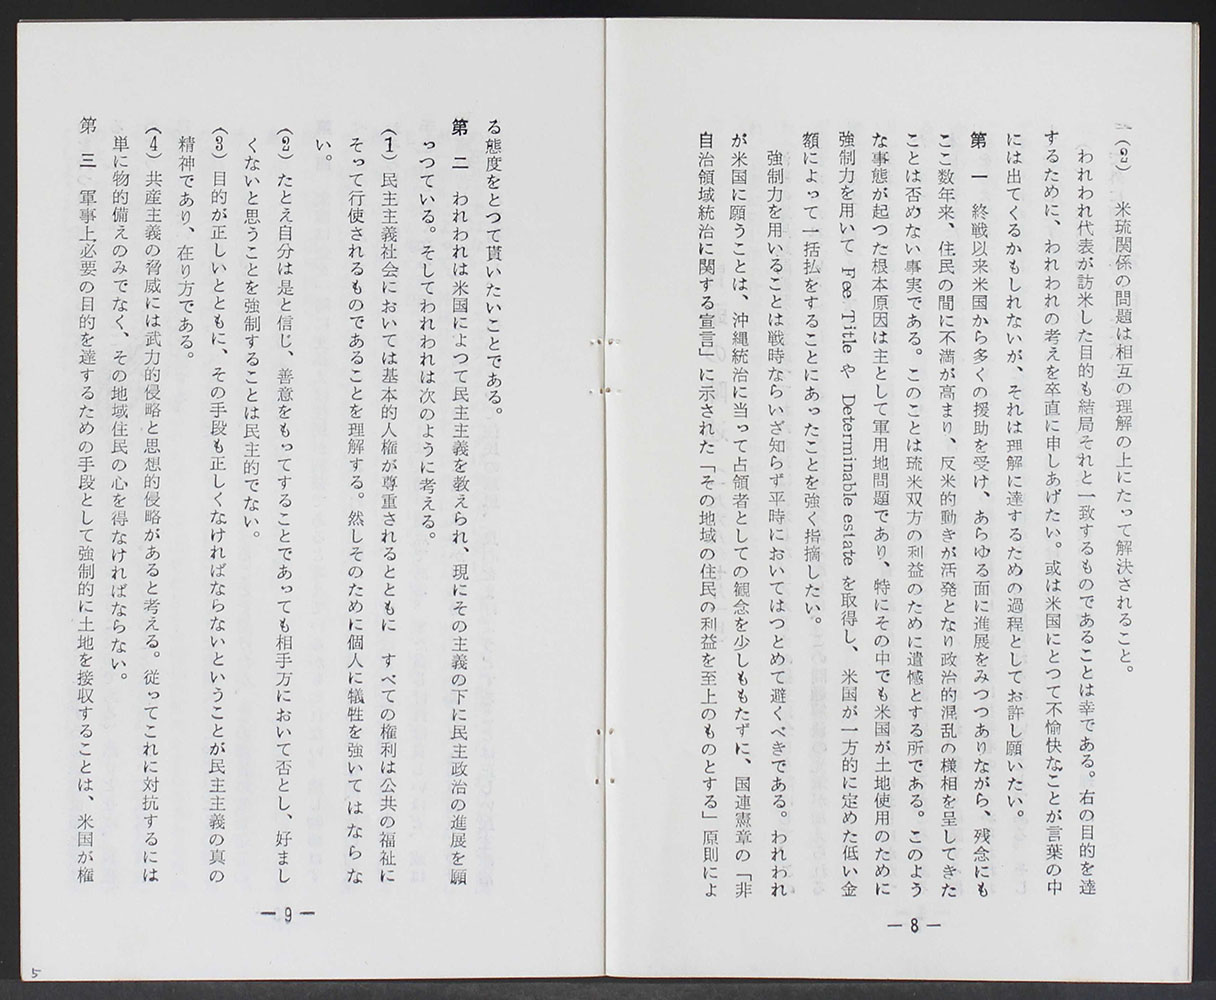 (2)　米琉関係の問題は相互の理解の上にたって解決されること。
われわれ代表が訪米した目的も結局それと一致するものであることは幸である。右の目的を達
するために、われわれの考えを卒直に申しあげたい。或は米国にとつて不愉快なことが言葉の中
には出てくるかもしれないが、それは理解に達するための過程としてお許し願いたい。
第　一　終戦以来米国から多くの援助を受け、あらゆる面に進展をみつつありながら、残念にも
ここ数年来、住民の間に不満が高まり、反米的動きが活発となり政治的混乱の様相を呈してきた
ことは否めない事実である。このことは琉米双方の利益のために遺憾とする所である。このよう
な事態が起つた根本原因は主として軍用地問題であり、特にその中でも米国が土地使用のために
強制力を用いて Fee Title や Determinable estate を取得し、米国が一方的に定めた低い金
額によって一括払をすることにあったことを強く指摘したい。
強制力を用いることは戦時ならいざ知らず平時においてはつとめて避くべきである。われわれ
が米国に願うことは、沖縄統治に当って占領者としての観念を少しももたずに、国連憲章の「非
自治領域統治に関する宣言」に示された「その地域の住民の利益を至上のものとする」原則によ
—8—
る態度をとつて貰いたいことである。
第　二　われわれは米国によつて民主主義を教えられ、現にその主義の下に民主政治の進展を願
っつている。そしてわれわれは次のように考える。
(1)　民主主義社会においては基本的人権が尊重されるとともに　すべての権利は公共の福祉に
そって行使されるものであることを理解する。然しそのために個人に犠牲を強いてはならな
い。
(2)　たとえ自分は是と信じ、善意をもってすることであっても相手方において否とし、好まし
くないと思うことを強制することは民主的でない。
(3)　目的が正しいとともに、その手段も正しくなければならないということが民主主義の真の
精神であり、在り方である。
(4)　共産主義の脅威には武力的侵略と思想的侵略があると考える。従ってこれに対抗するには
単に物的備えのみでなく、その地域住民の心を得なければならない。
第　三　軍事上必要の目的を達するための手段として強制的に土地を接収することは、米国が権
—9—
5